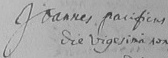 Joannes pacificus
die vigesima non